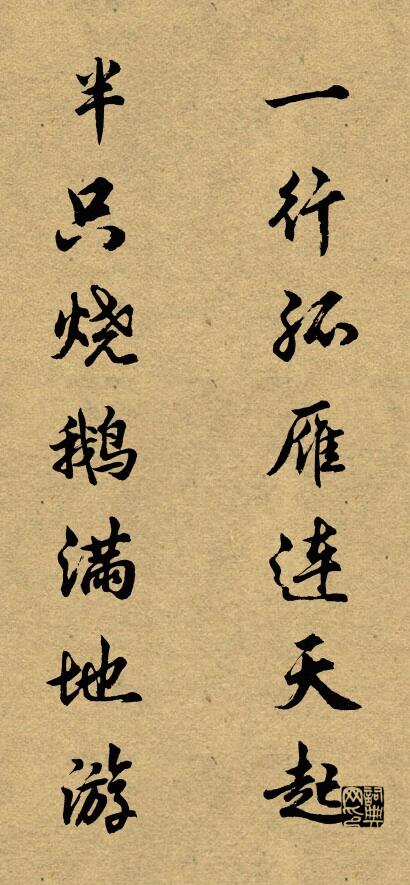 一行孤雁连天起
半只烧鹅满地游
詞典网